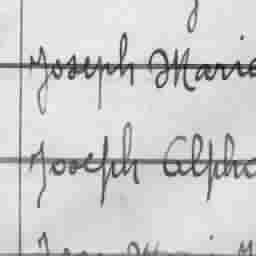 Joseph Marie
Joseph Alpho